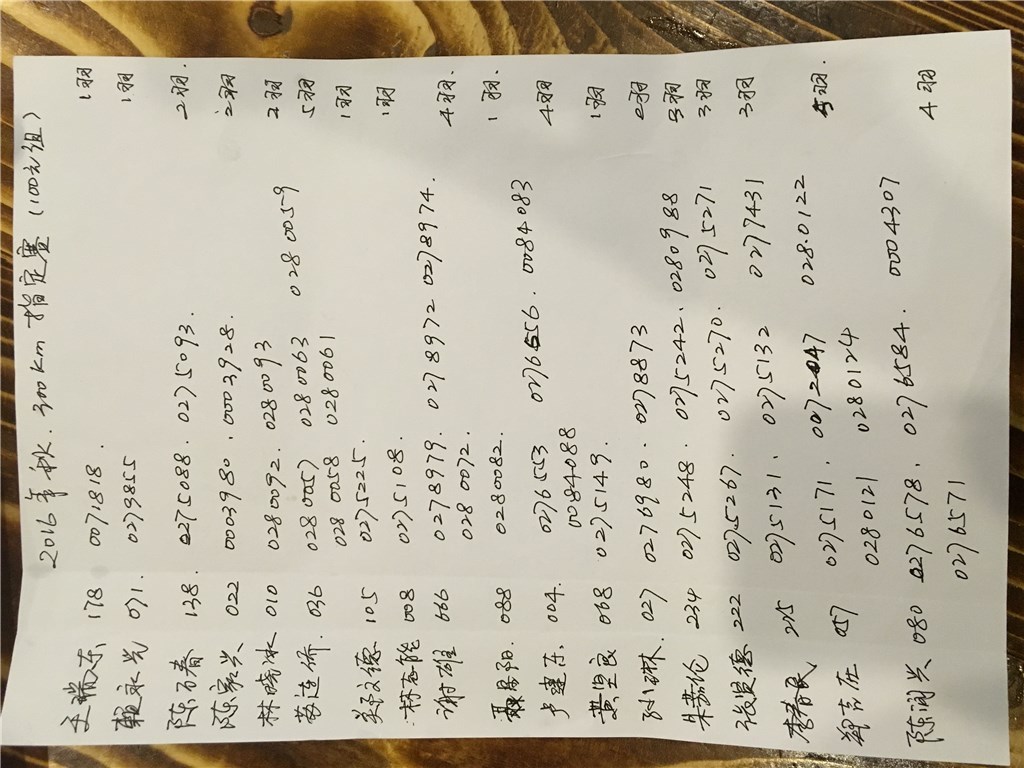 2016年秋.300Km指定赛(100元组)
王瑞东 178 0071818. 1羽
赖永光 091. 0279855 1羽
陈万春 138. 0275088. 0275093. 2羽.
陈家兴 022 0003980.0003928. 2羽
林晓冰 010 0280092.0280093 2羽
连侨. 036 0280057 0280063 0280059 5羽
0280058 0280061
文德 105 0275225 1羽
林志能 008 0275108. 1羽
谢雄 666 0278979. 0278972 0278974. 4羽.
0280072.
聂昌阳. 088 0280082. 1羽.
卢建东. 004. 0276553 0276556.0084083 4羽
0084088
黄坚良 068 0275149. 1羽
孙小林. 027 0276980.0278873 2羽
朱荔伦 234 0275248.0275242.0280988 3羽
张贤德 222 0275267. 0275270. 0275271 3羽
李春民 215 0275131. 0275132 0277431 3羽
郑吉庄 057 0275171. 0072047 0280122 5羽.
0280121 0280124
陈润兴 080 0276578. 0276584. 0004307 4羽
0276571